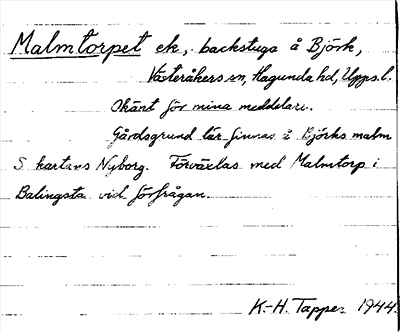 Malmtorpet ek, backstuga å Björk,
Västeråkers sn, Hagunda hd, Upps.l.
Okänt för mina meddelare.
Gårdsgrund lär finnas å Björks malm
S kartans Nyborg. Förväxlas med Malmtorp i
Balingsta vid förfrågan.
K-H. Tapper 1944.